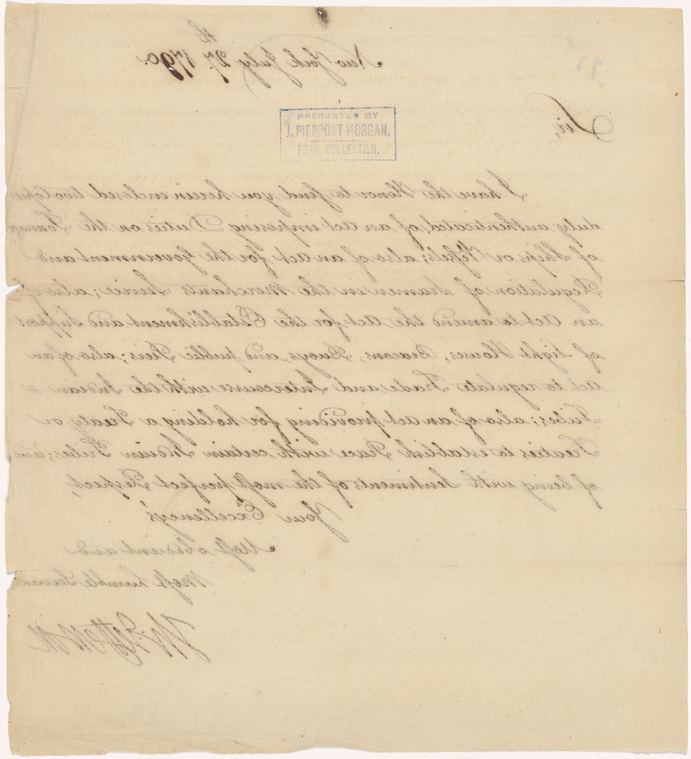 New York July 27th 1790.
PRESENTED BY
J. PIERPONT MORGAN,
FORD COLLECTION.
Sir,
I have the Honor to send you herein enclosed two Copies
duly authenticated, of an act imposing Duties on the Tonnage
of Ships or Vessels; also of an act for the Government and
Regulation of Seamen in the Merchants Service; also of
an act to amend the act for the Establishment and Support
of Light Houses, Beacons, Buoys and public Piers; also of an
act to regulate Trade and Intercourse with the Indian
Tribes; also of an act providing for holding a Treaty or
Treaties to establish Peace with certain Indian Tribes; and
of being with Sentiments of the most perfect Respect,
Your Excellency's
Most obedient and
Most humble Servant